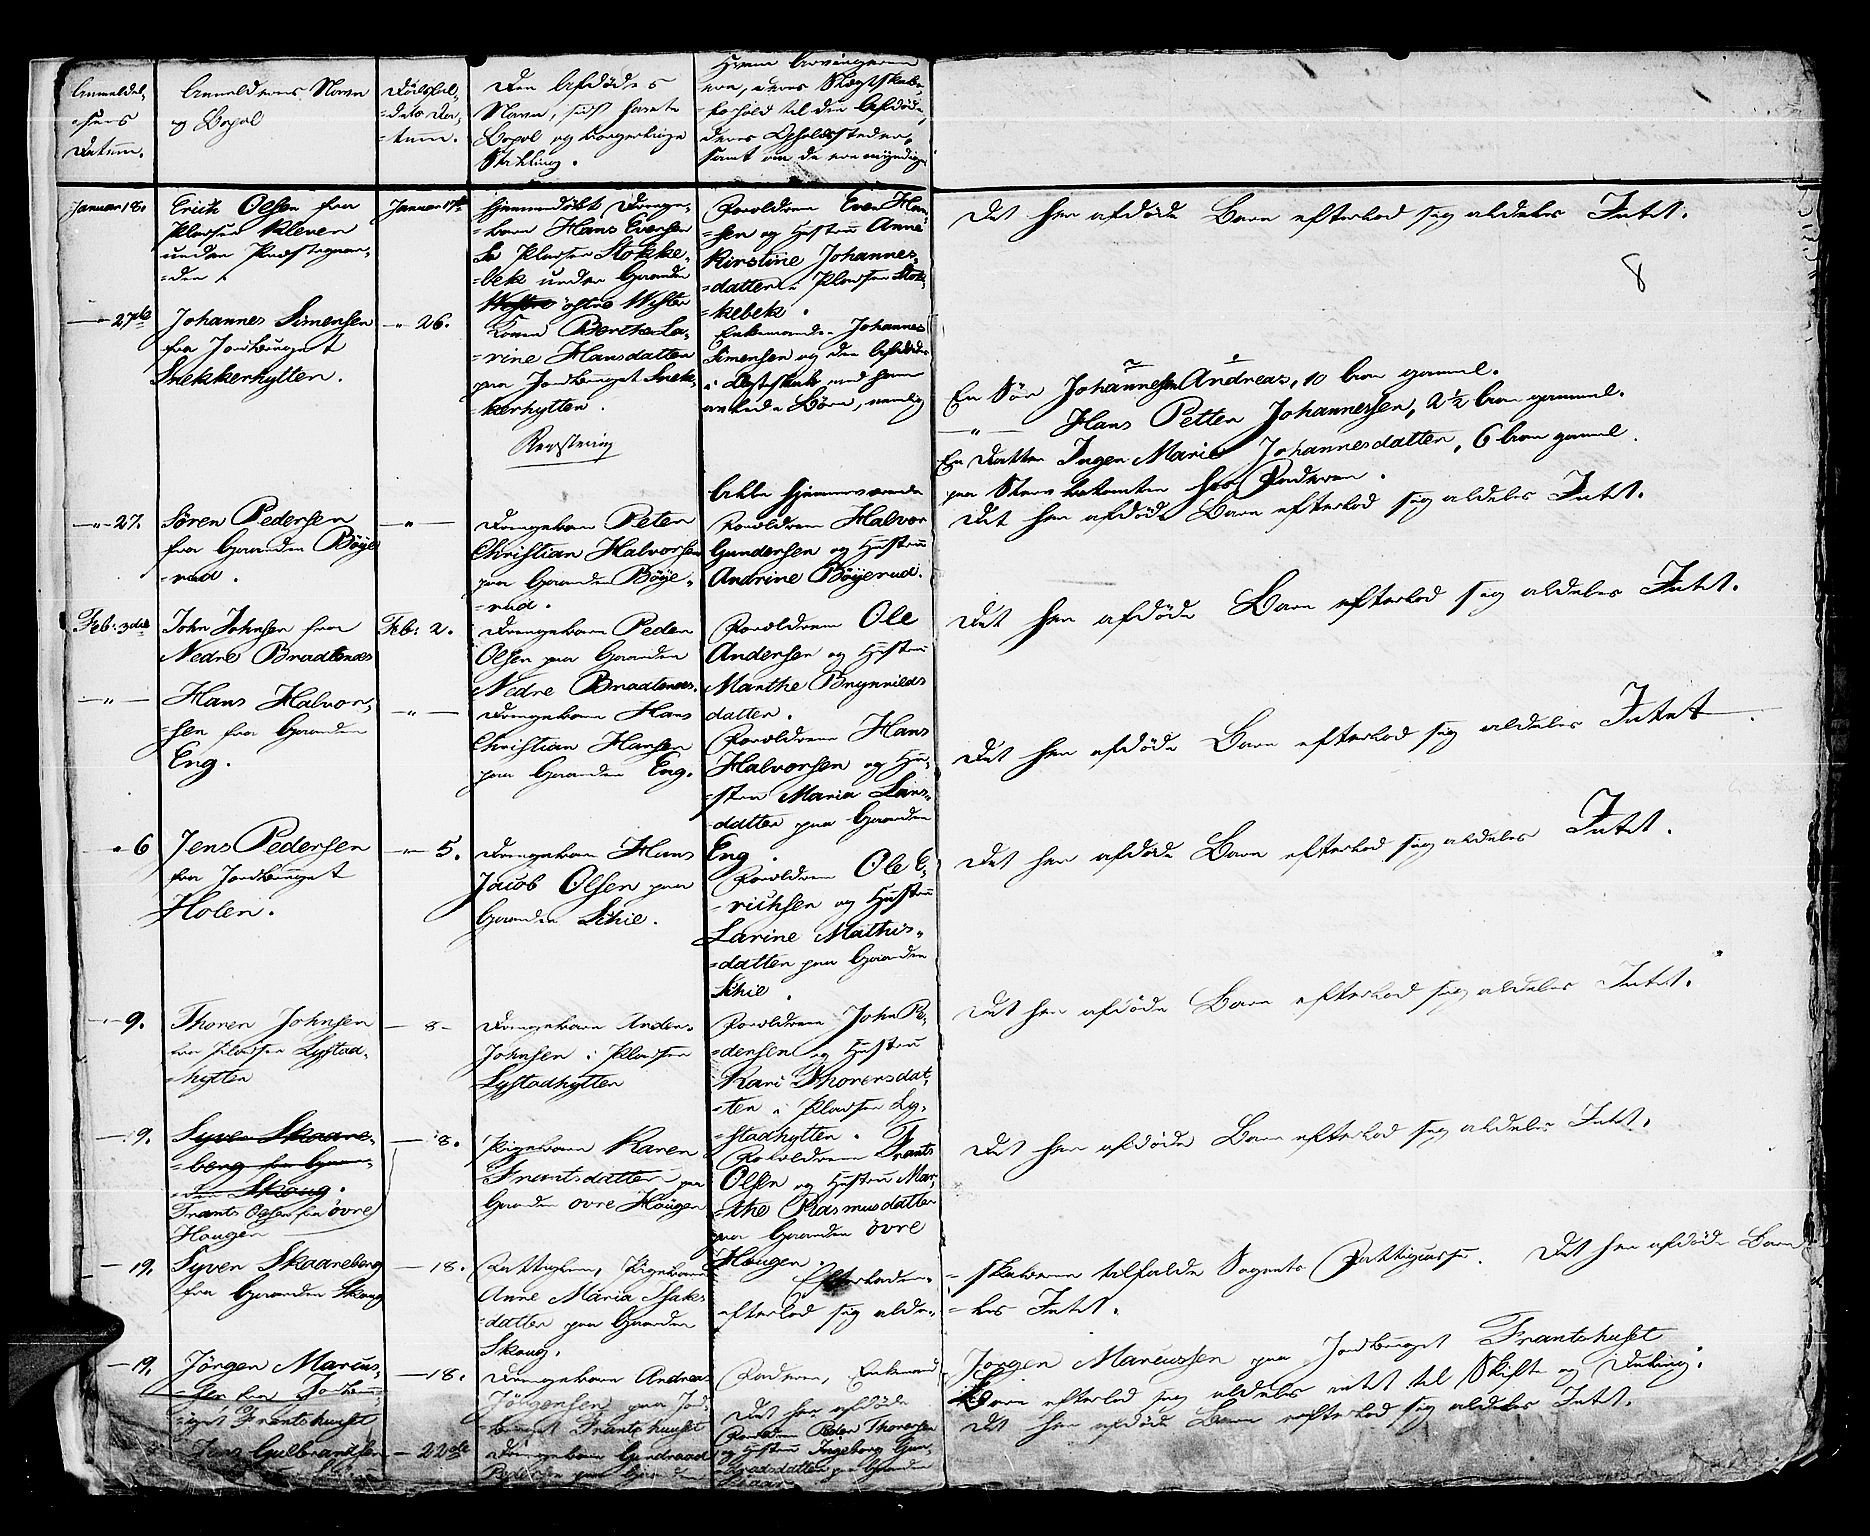 Anmeldel-
=sens
Datum.
Anmelderens Navn
og Bopæl
Dödsfal-
=dets Da-
=tum.
Den Afdødes
Navn, sidst havte
Bopæl og borgerlige
Stilling.
Hvem Arvingerne
ere, deres Slægtskabs
=forhold til den Afdøde,
deres Opholdssteder,
samt om de ere myndige
8
Januar 18.
Erich Olsen fra
Pladsen Kleven
under Præstegaar-
=den.
Januar 17de
Hjemmedöbt Drenge-
=barn Hans Evensen
Pladsen Stokke-
=bek under Gaarden
östre
Forældrene Even Han-
=sen og Hustru Anne
Kirstine Johannes-
=datter i Pladsen Stok-
=kebek.
Det her afdøde Barn efterlod sig aldeles Intet.
— 27de
Johannes Simensen
fra Jordbruget
Snekkerhytten.
— " 26.
Konen Berthe La-
=rine Hansdatter
paa Jordbruget Snek-
kerhytten.
Enkemanden Johannes
Simensen og den Afdødes
i Ægteskab med ham
avlede Börn, nemlig
En Sön Johannes Andreas, 10 Aar gammel.
— " — Hans Petter Johannessen, 2½ Aar gammel.
En Datter Inger Marie Johannesdatter, 6 Aar gammel.
Alle hjemmeværende
paa Stervboetomten hos Faderen.
— " 27.
Sören Pedersen
fra Gaarden Böye
=rud.
— " —
Drengebarn Peter
Christian Halvorsen
paa Gaarden Böye-
=rud.
Forældrene Halvor
Gundersen og Hustru
Andrine Böyerud.
Det her afdøde Barn efterlod sig aldeles Intet.
Feb: 3die
John Johnsen fra
Nedre Bradtenes
Feb: 2.
Drengebarn Peder
Olsen paa Gaarden
Nedre Bradtenes.
Forældrene Ole
Andersen og Hustru
Marthe Brynnilds
datter.
Det her afdøde Barn efterlod sig aldeles Intet.
— " —
Hans Halvor-
=sen fra Gaarden
Eng.
— " —
Drengebarn Hans
Christian Hansen
paa Gaarden Eng.
Forældrene Hans
Halvorsen og Hu-
=stru Maria Lars-
datter paa Gaarden
Eng.
Det her afdøde Barn efterlod sig aldeles Intet.
— " 6
Jens Pedersen
fra Jordbruget
Holen.
— " 5.
Drengebarn Hans
Jacob Olsen paa
Gaarden Schie.
Forældrene Ole E-
=richsen og Hustru
Larine Mathis-
=datter paa Gaarden
Schie.
Det her afdøde Barn efterlod sig aldeles Intet.
— 9.
Thoren Johnsen
fra Pladsen Lystad-
=hytten
— 8 —
Drengebarn Anders
Johnsen i Pladsen
Lystadhytten
Forældrene John Pe-
=dersen og Hustru
Kari Thorersdat-
=ter i Pladsen Ly-
=stadhytten.
Det her afdøde Barn efterlod sig aldeles Intet.
— 9.
Syver Skaare-
=berg fra Gaar-
=den Skoug.
Frants Olsen fra övre
Hougen
— 8.
Pigebarn Karen
Frantsdatter paa
Gaarden övre Hougen
Forældrene Frants
Olsen og Hustru Mar-
=the Rasmusdatter
paa Gaarden övre
Hougen.
Det her afdøde Barn efterlod sig aldeles Intet.
— 19.
Syver Skaareberg
fra Gaarden Skoug
— 18.
Fattiglem, Pigebarn
Anne Maria Isaks-
=datter paa Gaarden
Skoug.
Efterladen-
=skaberne tilfalde Sognets Fattigcasse. Det her afdøde Barn
efterlod sig alde-
=les Intet.
— 19.
Jörgen Marcus-
=sen fra Jordbru-
=get Frantshuset
— 18.
Drengebarn Andreas
Jörgensen paa Jord-
bruget Frantshuset
Faderen, Enkemand
Jörgen Marcussen paa Jordbruget Frantshuset
Det her afdøde
Barn efterlod sig aldeles intet til Skifte og Deling.
Jens Gulbrandsen
— 22de
Drengebarn Gundraad
Pedersen paa Gaarden
Forældre Peder Thoresen
og Hustru Ingeborg Gun-
=draadsdatter paa Gaarden
Det her afdøde Barn efterlod sig aldeles Intet.